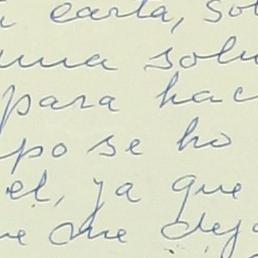 carta, so
una solu
para hac
po se ho
el, ya que
que me deja